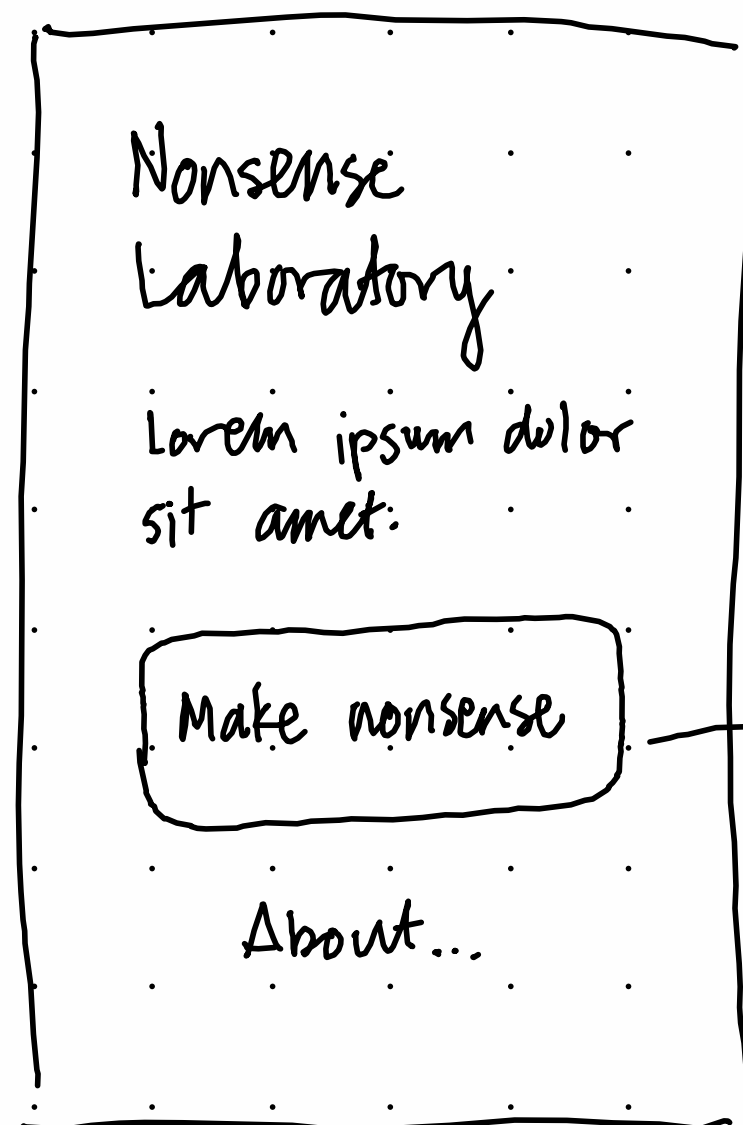 Nonsense
Laboratory
Lorem ipsum dolor
sit amet.
Make nonsense
About...